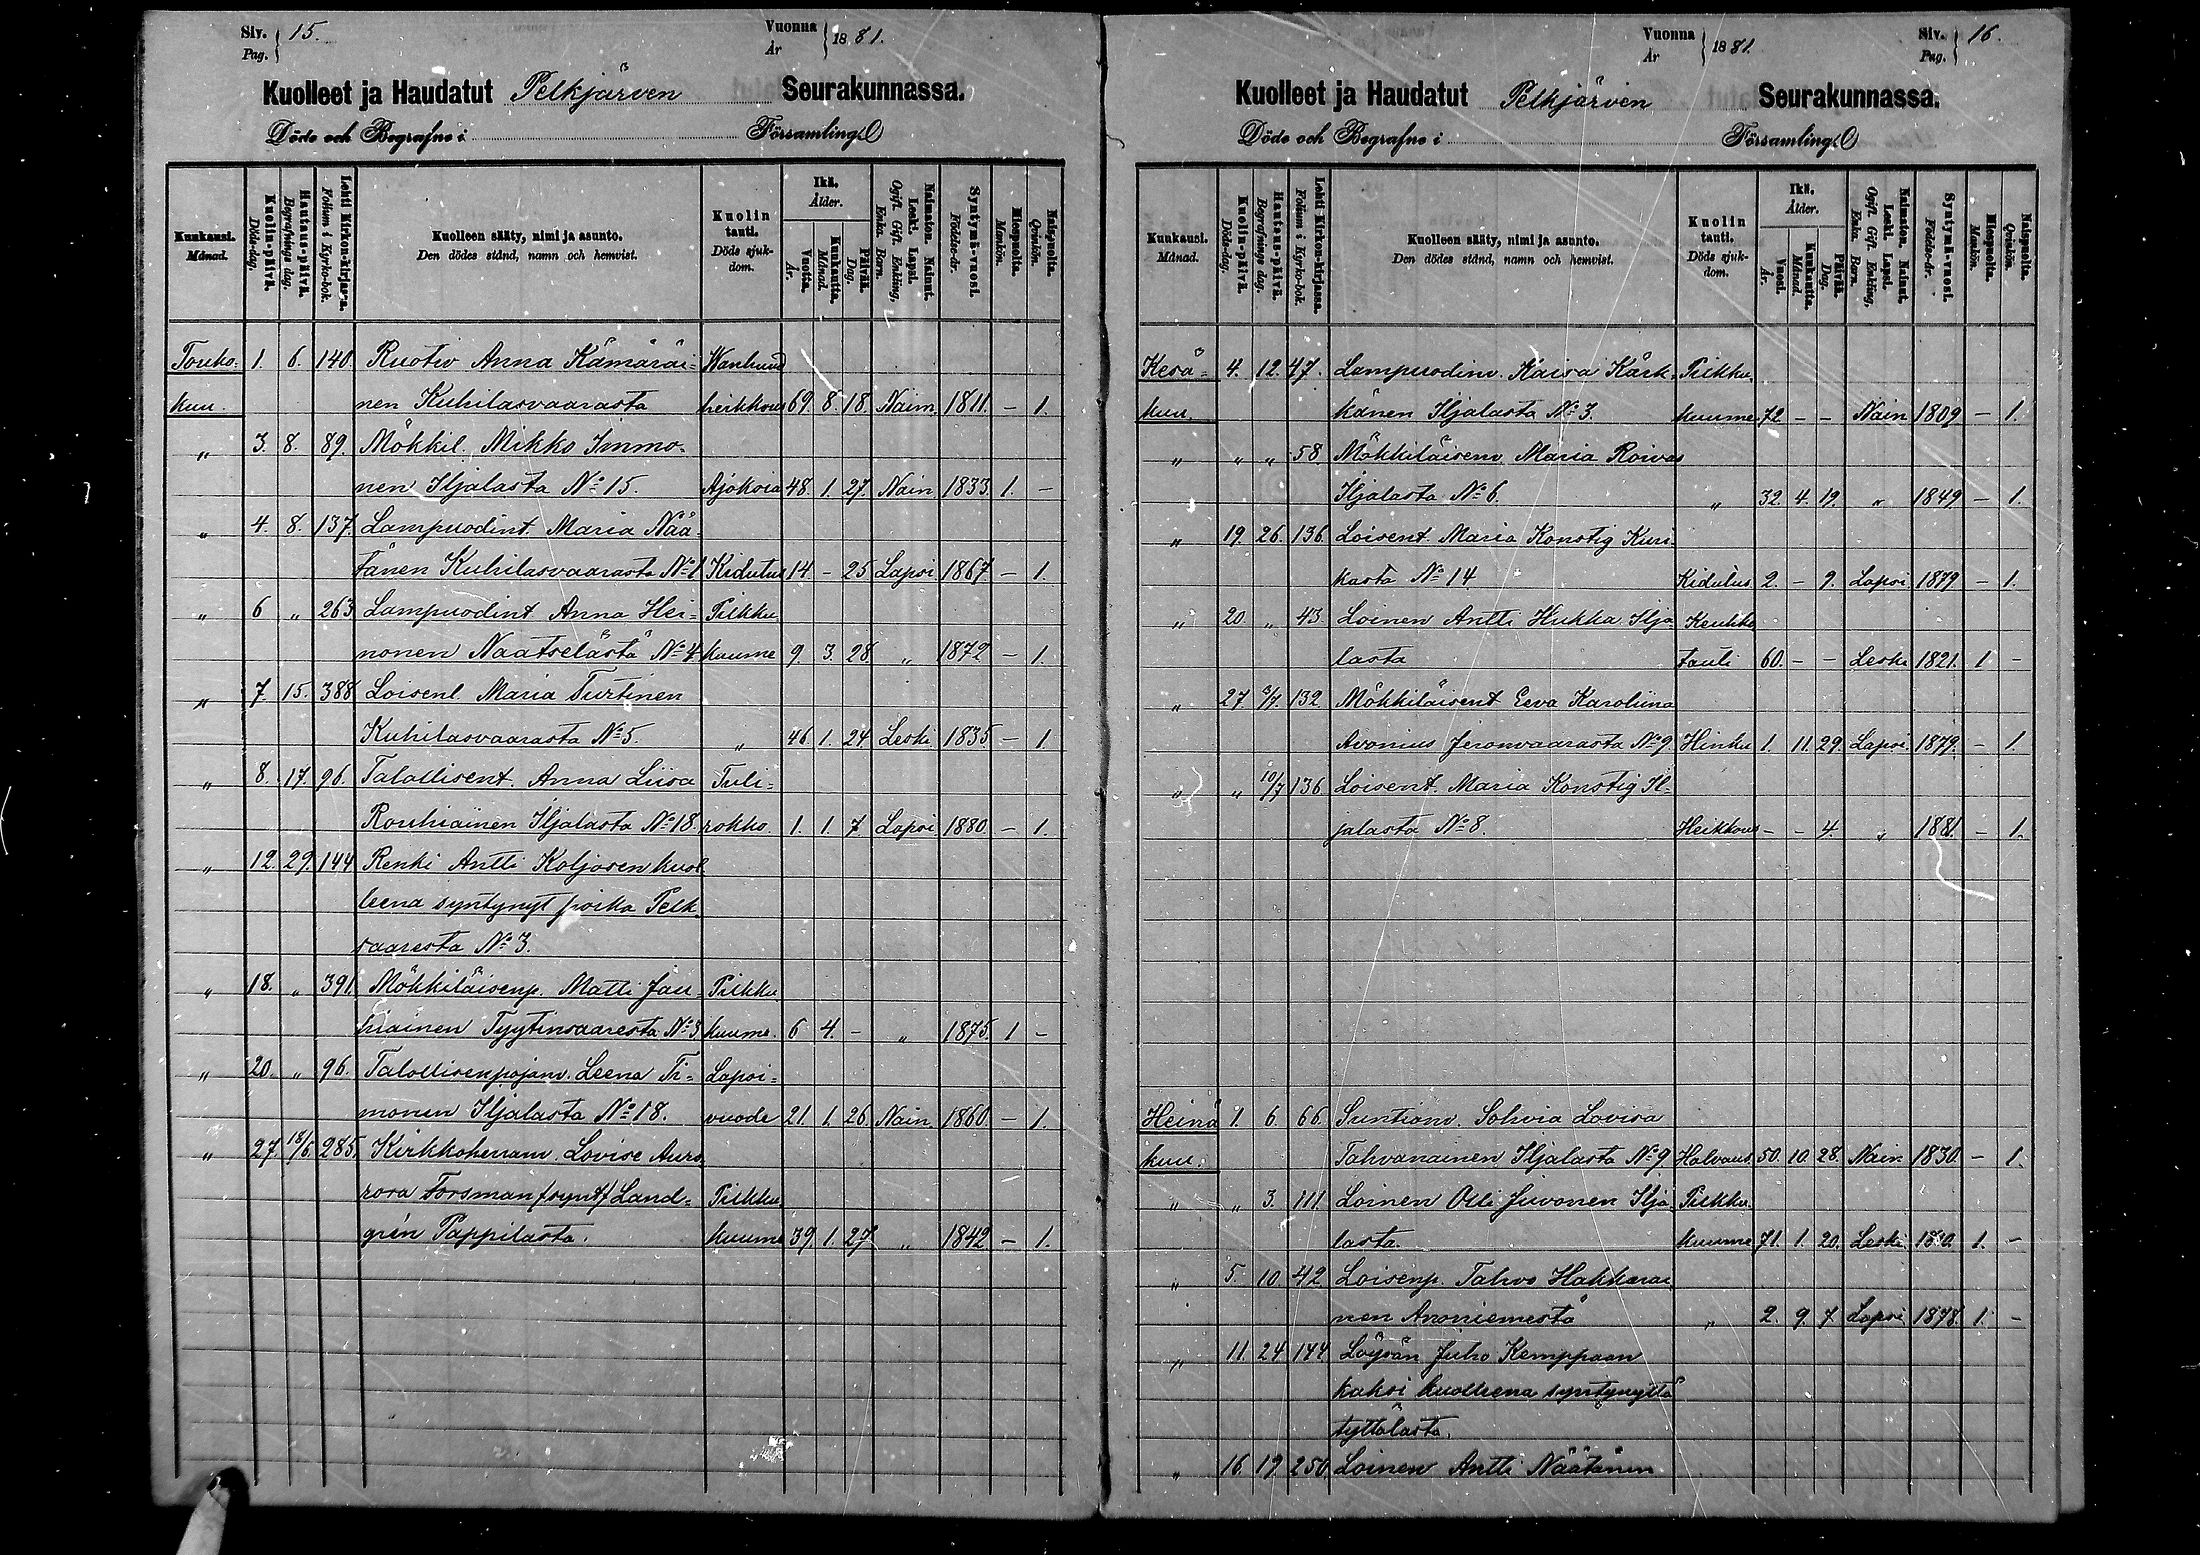 Siv. Pag. 15. Vuonna År 1881.
Kuolleet ja Haudatut Pelkjärven Seurakunnassa.
Döde och Begrafne i Församling.
Kuukausi. Månad. Kuolin-päivä. Döds-dag. Hautaus-päivä. Begrafnings dag. Lehti Kirkon-kirjassa. Folium i Kyrko-bok. Kuolleen sääty, nimi ja asunto. Den dödes stånd, namn och hemvist. Kuolin tauti. Döds sjukdom. Ikä. Ålder. Vuotta. År. Kuukautta. Månad. Päivää. Dag. Naimaton. Nainut. Leski. Lapsi. Ogift. Gift. Enkling, Enka. Barn. Syntymä-vuosi. Födelse-år. Miespuolta. Mankön. Naispuolta. Qvinkön.
Touko- 1. 6. 140. Ruotiv Anna Kämäräi- Wanhuud
kuu. nen Kuhilasvaarasta heikkous 69. 8. 18. Naim. 1811. - 1.
" 3. 8. 89. Mökkil. Mikko Immo-
nen Iljalasta No 15. Ajoksia 48. 1. 27. Nain 1833. 1. -
" 4. 8. 137. Lampuodint. Maria Nää-
tänen Kuhilasvaarasta No 1 Kidutus 14 - 25 Lapsi 1867 - 1.
" 6 " 263 Lampuodint Anna Hei- Pilkku
nonen Naatselästä No 4 kuume 9. 3. 28. " 1872 - 1.
" 7. 15. 388 Loisenl Maria Turtinen
Kuhilasvaarasta No 5. " 46. 1. 24 Leski 1835 - 1.
" 8. 17. 96. Talollisent. Anna Liisa Tuli-
Rouhiainen Iljalasta No 18 rokko. 1. 1. 7. Lapsi 1880 - 1.
" 12. 29. 144 Renki Antti Koljosen kuol
leena syntynyt poika Pelk
saaresta No 3.
" 18. " 391. Mökkiläisenp. Matti Jau- Pilkku
hiainen Tyytinsaaresta No 3 kuume. 6 4. - " 1875. 1 -
" 20. " 96. Talollisenpojanv. Leena Ti- Lapsi-
monen Iljalasta No 18. vuode 21. 1. 26. Nain 1860 - 1.
" 27 18/6 285. Kirkkoherranv. Lovise Auro
rora Forsman /synt/ Land- Pilkku
grén Pappilasta. kuume 39. 1. 27 " 1842 - 1.
Siv. Pag. 16. Vuonna År 1881.
Kuolleet ja Haudatut Pelkjärven Seurakunnassa.
Döde och Begrafne i Församling.
Kuukausi. Månad. Kuolin-päivä. Döds-dag. Hautaus-päivä. Begrafnings dag. Lehti Kirkon-kirjassa. Folium i Kyrko-bok. Kuolleen sääty, nimi ja asunto. Den dödes stånd, namn och hemvist. Kuolin tauti. Döds sjukdom. Ikä. Ålder. Vuosi. År. Kuukautta. Månad. Päivää. Dag. Naimaton. Nainut. Leski. Lapsi. Ogift. Gift. Enkling, Enka. Barn. Syntymä-vuosi. Födelse-år. Miespuolta. Mankön. Naispuolta. Qvinkön.
Kesä- 4. 12. 47. Lampuodinv. Kaisa Kärk- Pilkku
kuu. känen Iljalasta No 3. kuume 72. - - Nain 1809 - 1.
" " " 58. Mökkiläisenv Maria Roivas
Iljalasta No 6. " 32. 4. 19. " 1849 - 1.
" 19. 26. 136. Loisent. Maria Konstig Kuri-
kasta No 14 Kidutus 2. - 9. Lapsi 1879 - 1.
" 20. " 43 Loinen Antti Hukka Ilja- Keuhko
lasta tauti 60. - - Leski 1821. 1 -
" 27 3/7. 132 Mökkiläisent Eeva Karoliina
Avonius Jeronvaarasta No 9. Hinku 1. 11. 29. Lapsi. 1879. - 1.
" " 10/7 136 Loisent. Maria Konstig Il-
jalasta No 8. Heikkous - - 4. " 1881. - 1.
Heinä 1. 6. 66. Suntionv. Sohvia Lovisa
kuu. Tahvanainen Iljalasta No 9 Halvaus 50. 10. 28. Nain 1830 - 1.
" " 3. 111 Loinen Olli Juvonen Ilja- Pilkku
lasta. kuume 71. 1. 20. Leski 1. -
" 5. 10. 42 Loisenp. Tahvo Hakkarai
nen Anoniemestä " 2. 9. 7 Lapsi 1878. 1. -
" 11. 24 144 Löysän Juho Kemppaan
kaksi kuolleena syntynyttä
tyttölasta.
" 16. 19 250 Loinen Antti Näätänen